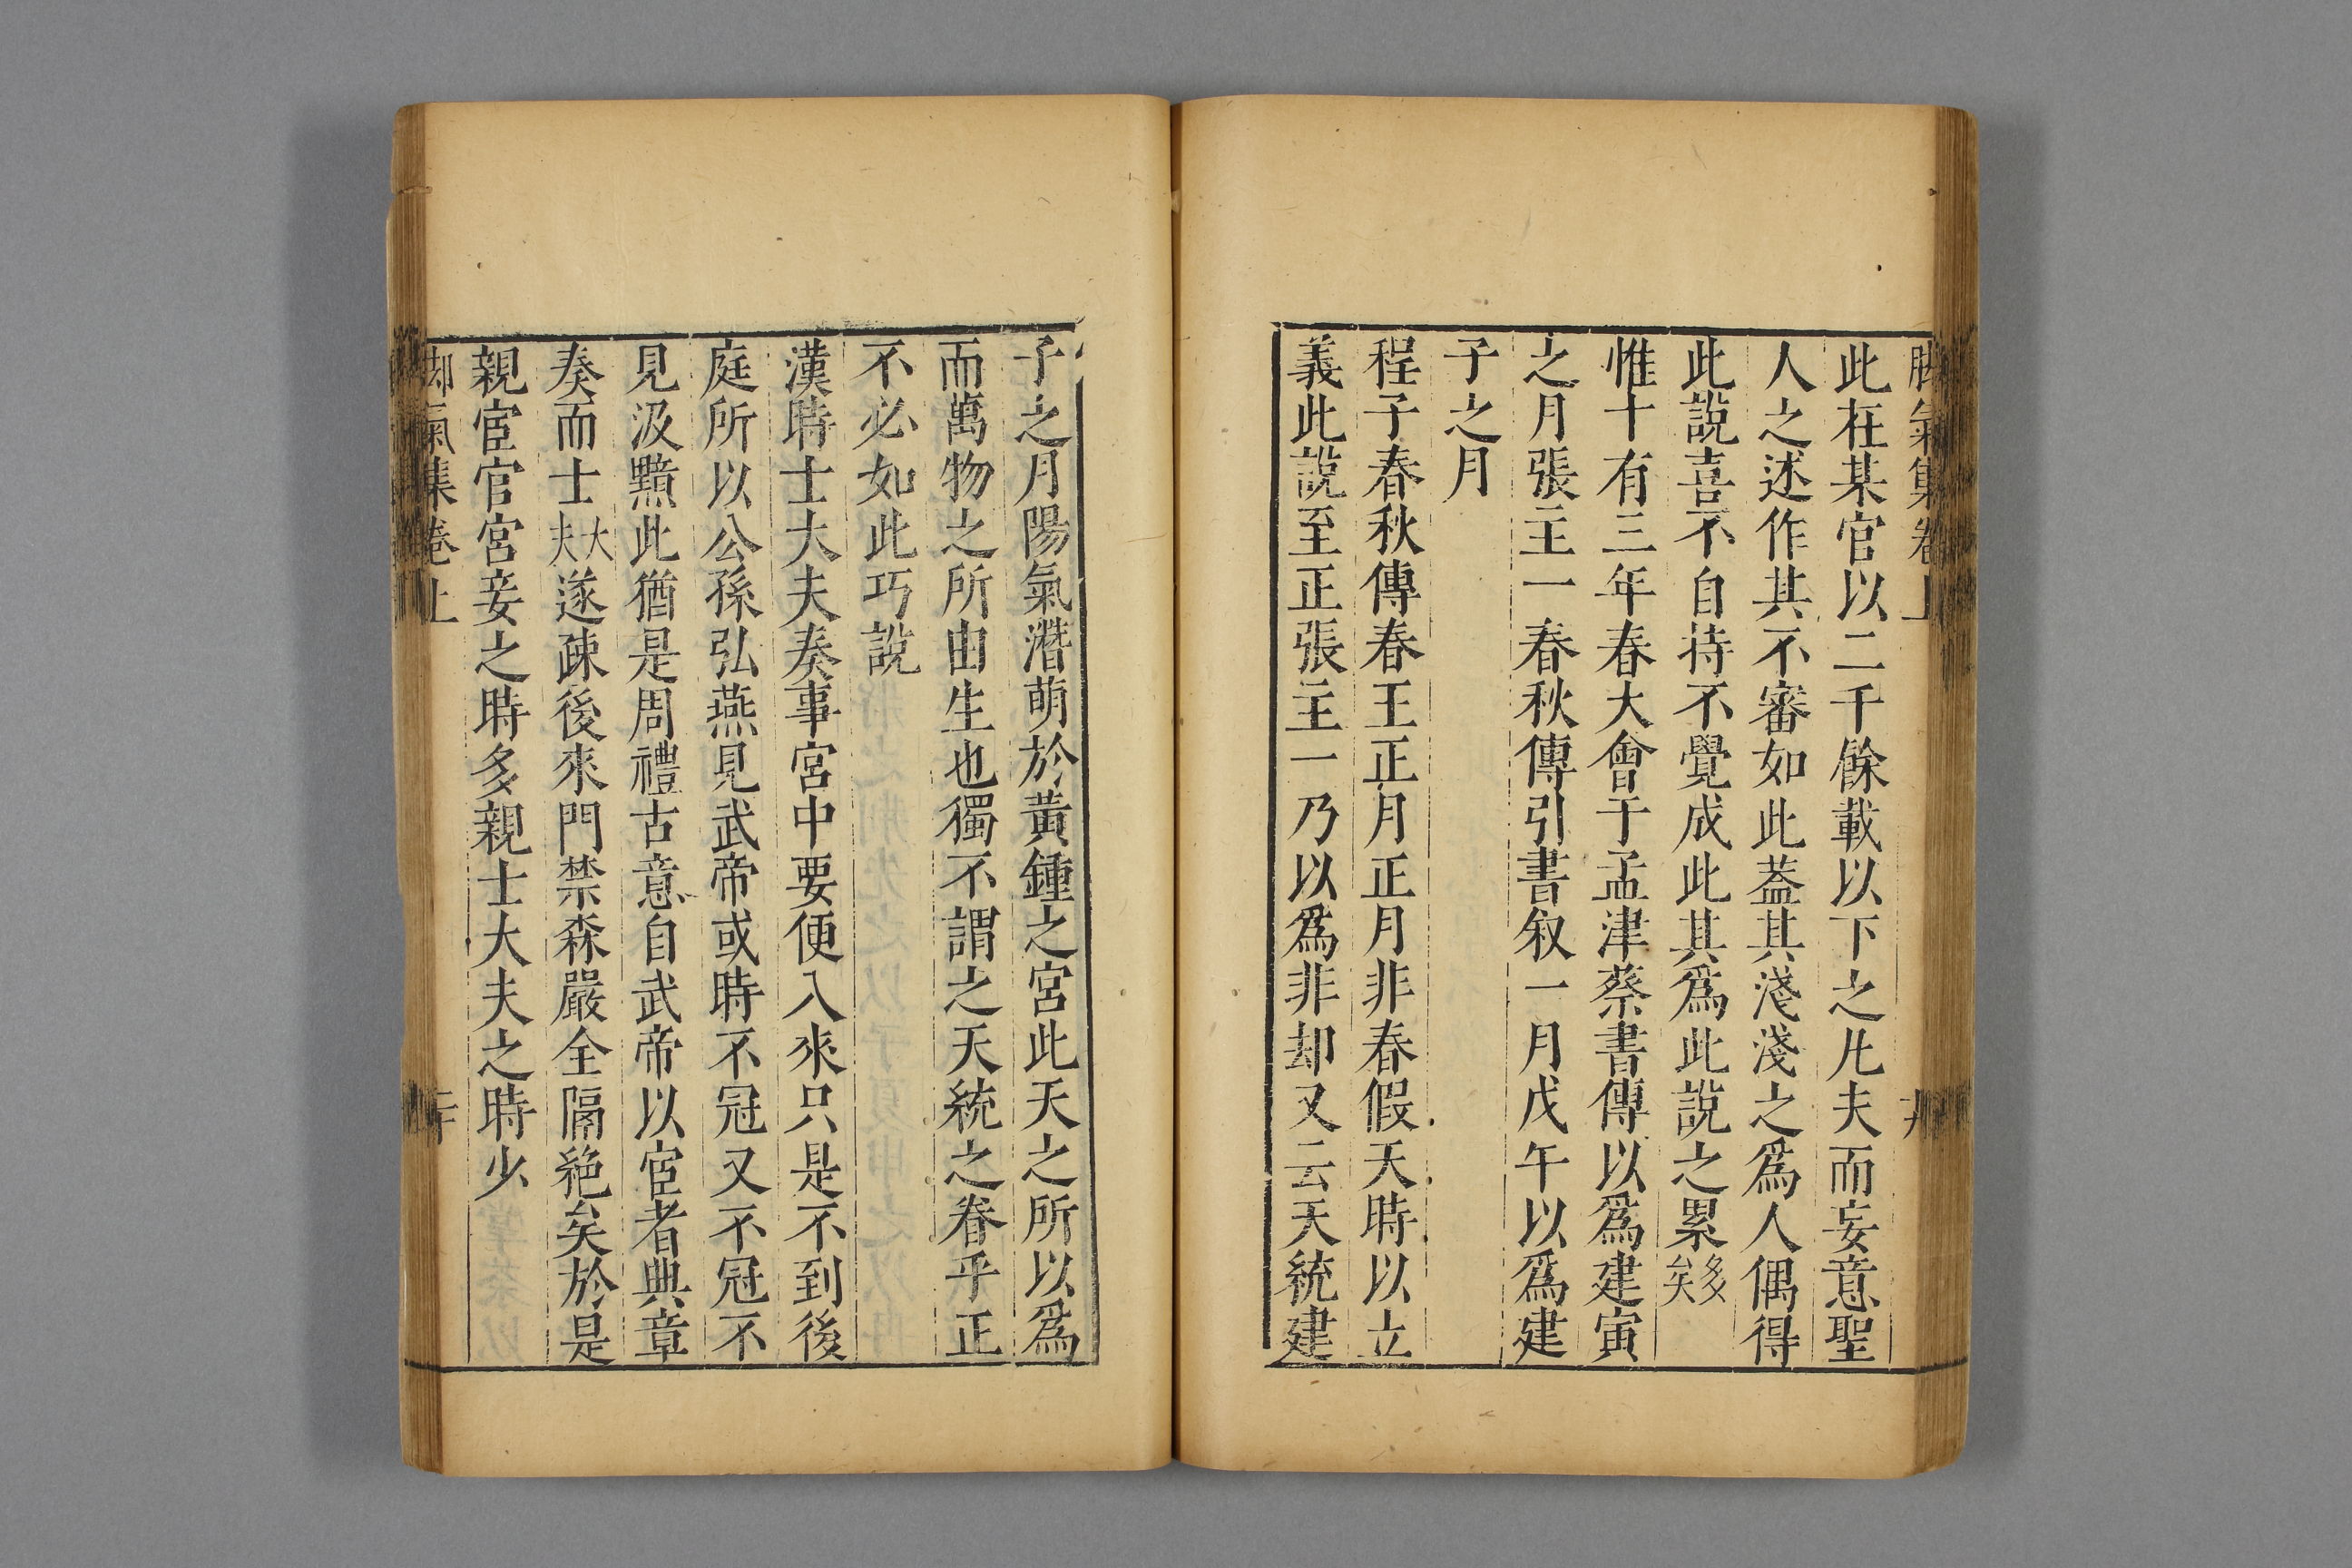 脚氣集卷上
十九
此在某官以二千餘載以下之凡夫而妄意聖
人之述作其不審如此蓋其淺淺之爲人偶得
此說喜不自持不覺成此其爲此說之累多矣
惟十有三年春大會于孟津蔡書傳以爲建寅
之月張主一春秋傳引書叙一月戊午以爲建
子之月
程子春秋傳春王正月正月非春假天時以立
義此說至正張主一乃以爲非却又云天統建
子之月陽氣潛萌於黃鍾之宮此天之所以爲
而萬物之所由生也獨不謂之天統之春乎正
不必如此巧說
漢時士大夫奏事宮中要便入來只是不到後
庭所以公孫弘燕見武帝或時不冠又不冠不
見汲黯此猶是周禮古意自武帝以宦者典章
奏而士大夫遂疎後來門禁森嚴全隔絶矣於是
親宦官宮妾之時多親士大夫之時少
脚氣集卷上
二十